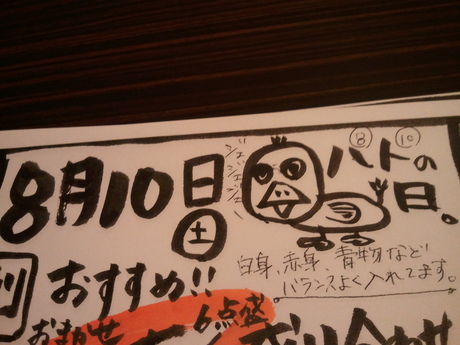 8月10日
土
ジェジェジェジェ
8 10
ハトの日。
白身、赤身、青物など
バランスよく入れてます。
おすすめ!!
おまかせ
6点盛
盛り合わせ